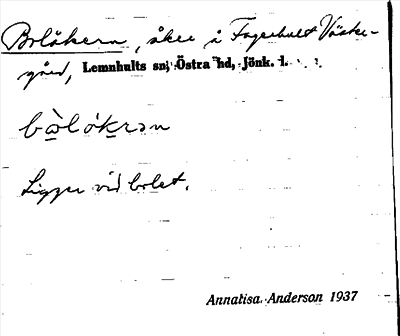 Bolåkern, åker å Fagerhult Väster-
gård, Lemnhults sn, Östra hd, Jönk. l.
bòlókrən
Ligger vid bolet.
Annalisa Anderson 1937